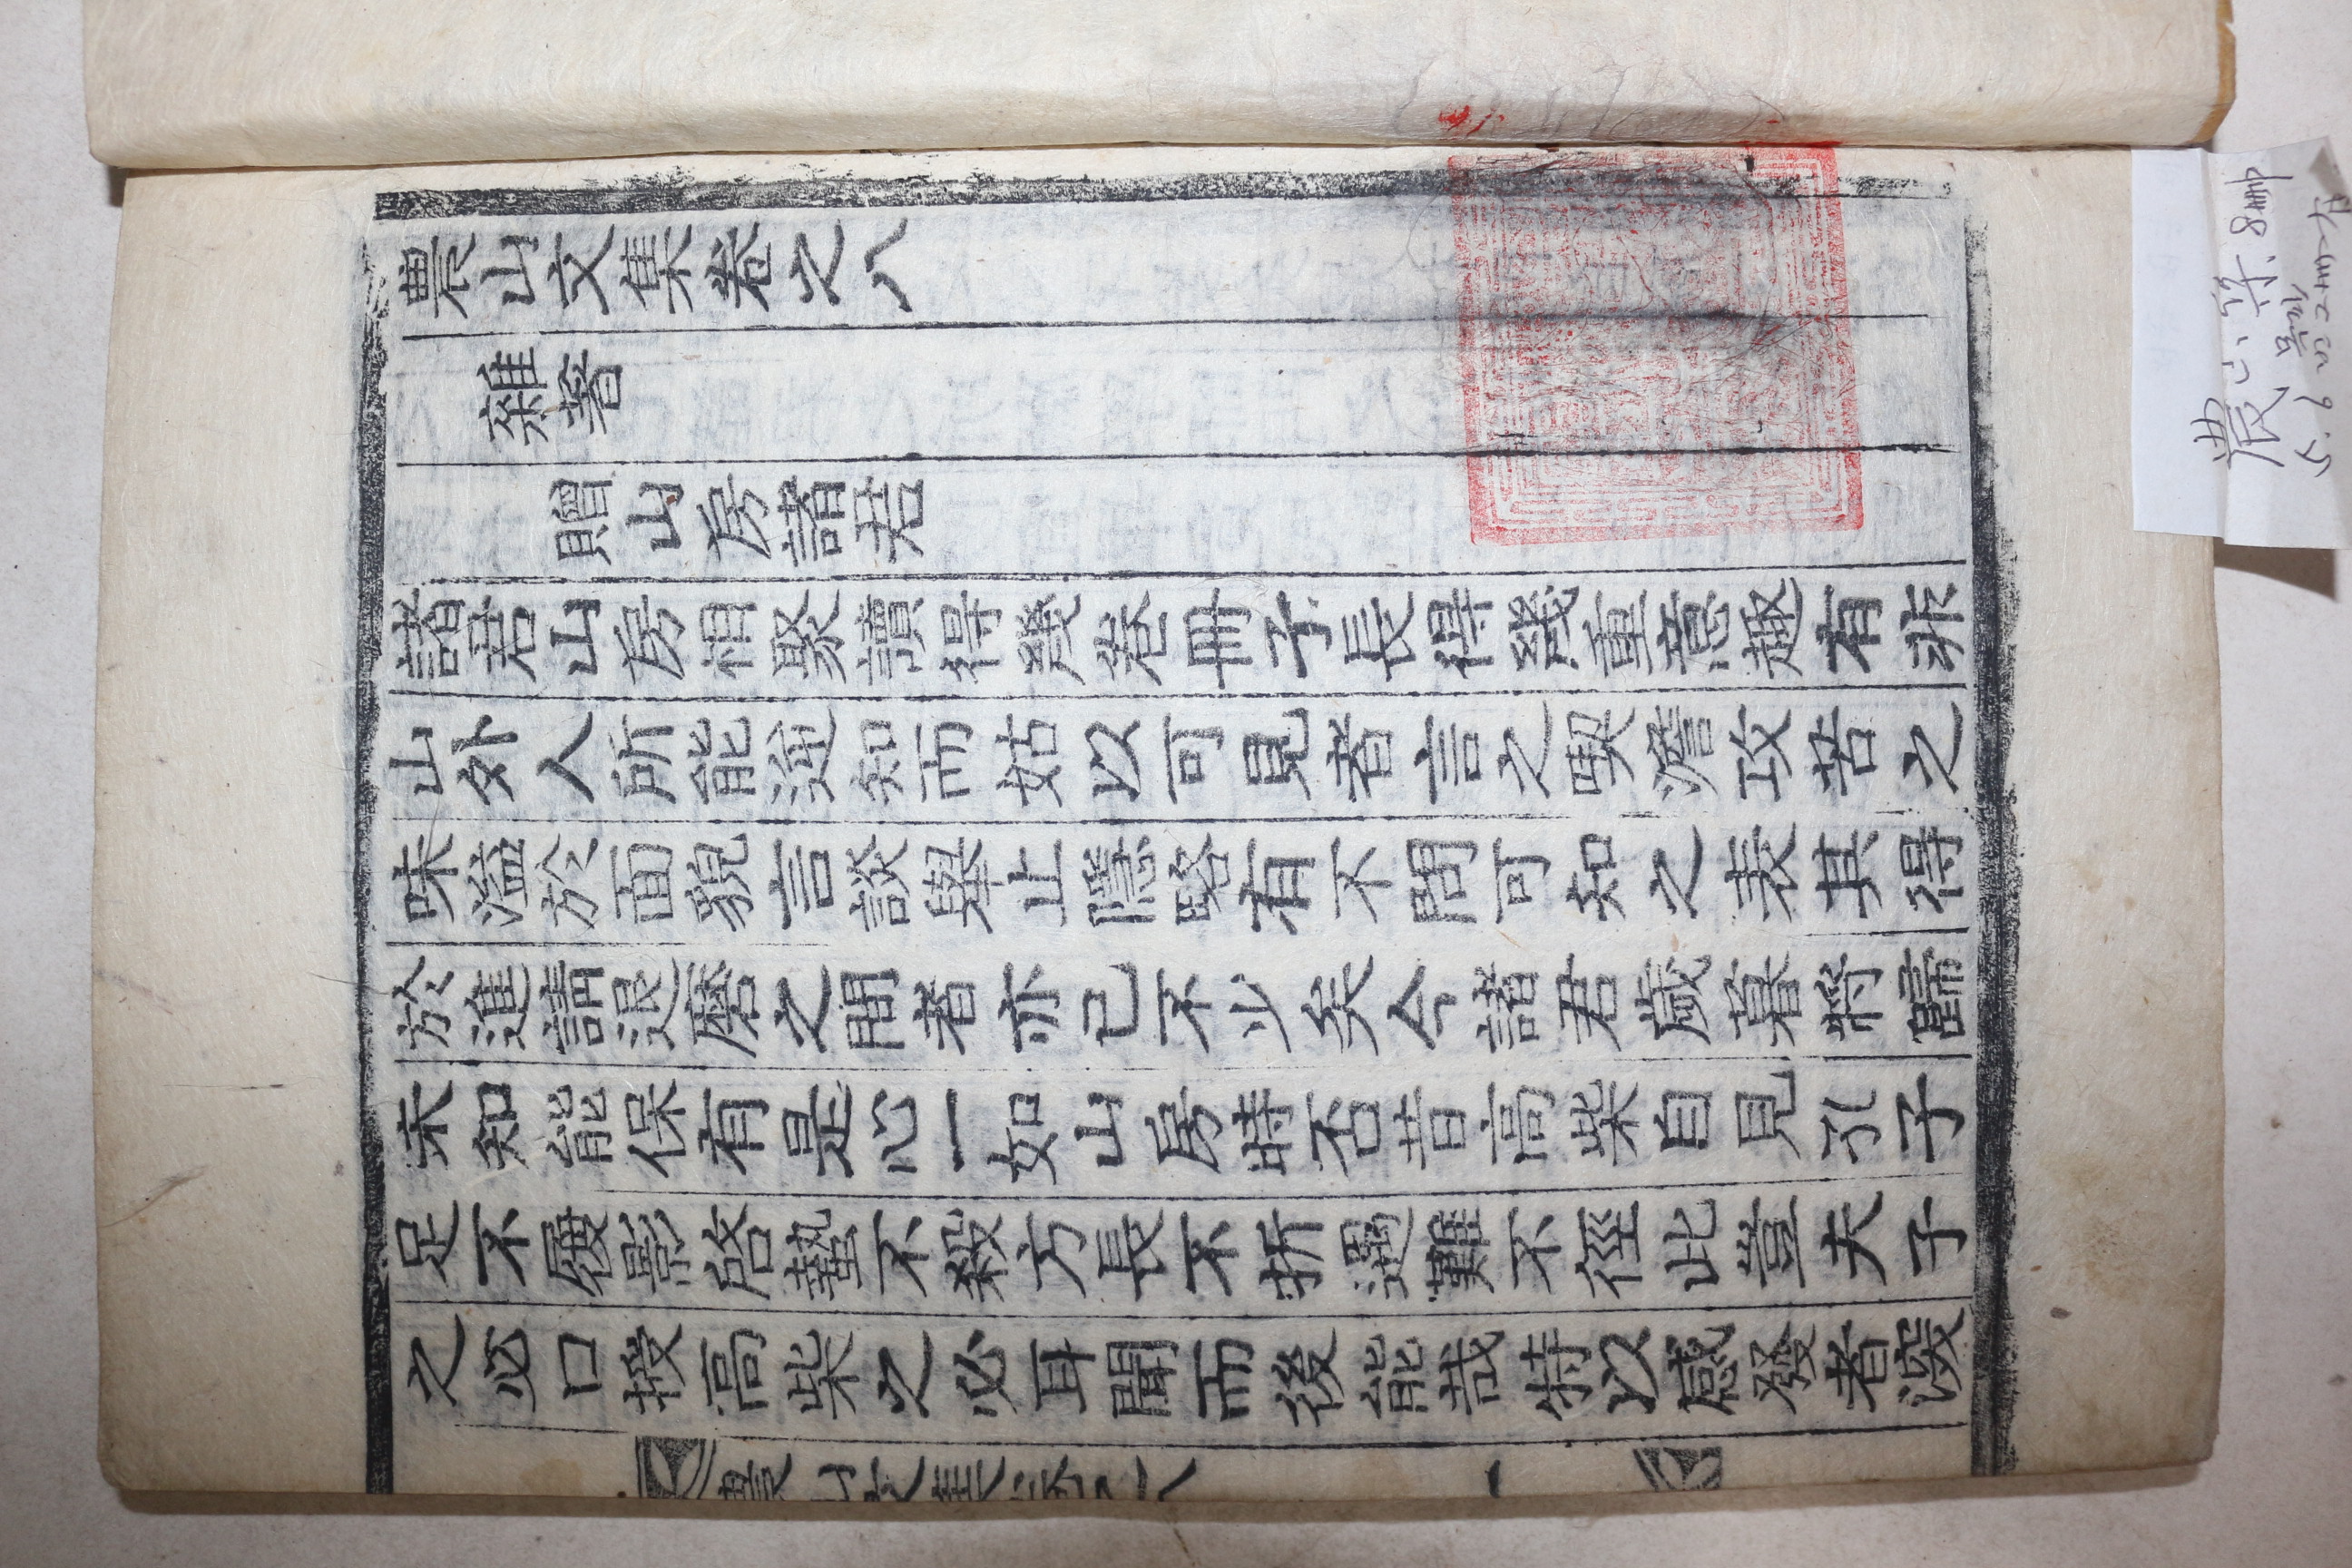 農山文集卷之八
雜著
贈山房諸君
諸君山房相聚讀得幾卷冊子長得幾重意趣有非
山外人所能逆知而姑以可見者言之喫澹攻苦之
味溢於面貌言談擧止隱畧有不問可知之表其得
於進請退磨之間者亦已不少矣今諸君歲暮將歸
未知能保有是心一如山房時否昔高柴自見孔子
足不履影啓蟄不殺方長不折遇難不徑此豈夫子
之必口授高柴之必耳聞而後能哉特以感發者深
農山文集卷之八 一
農山集 8冊